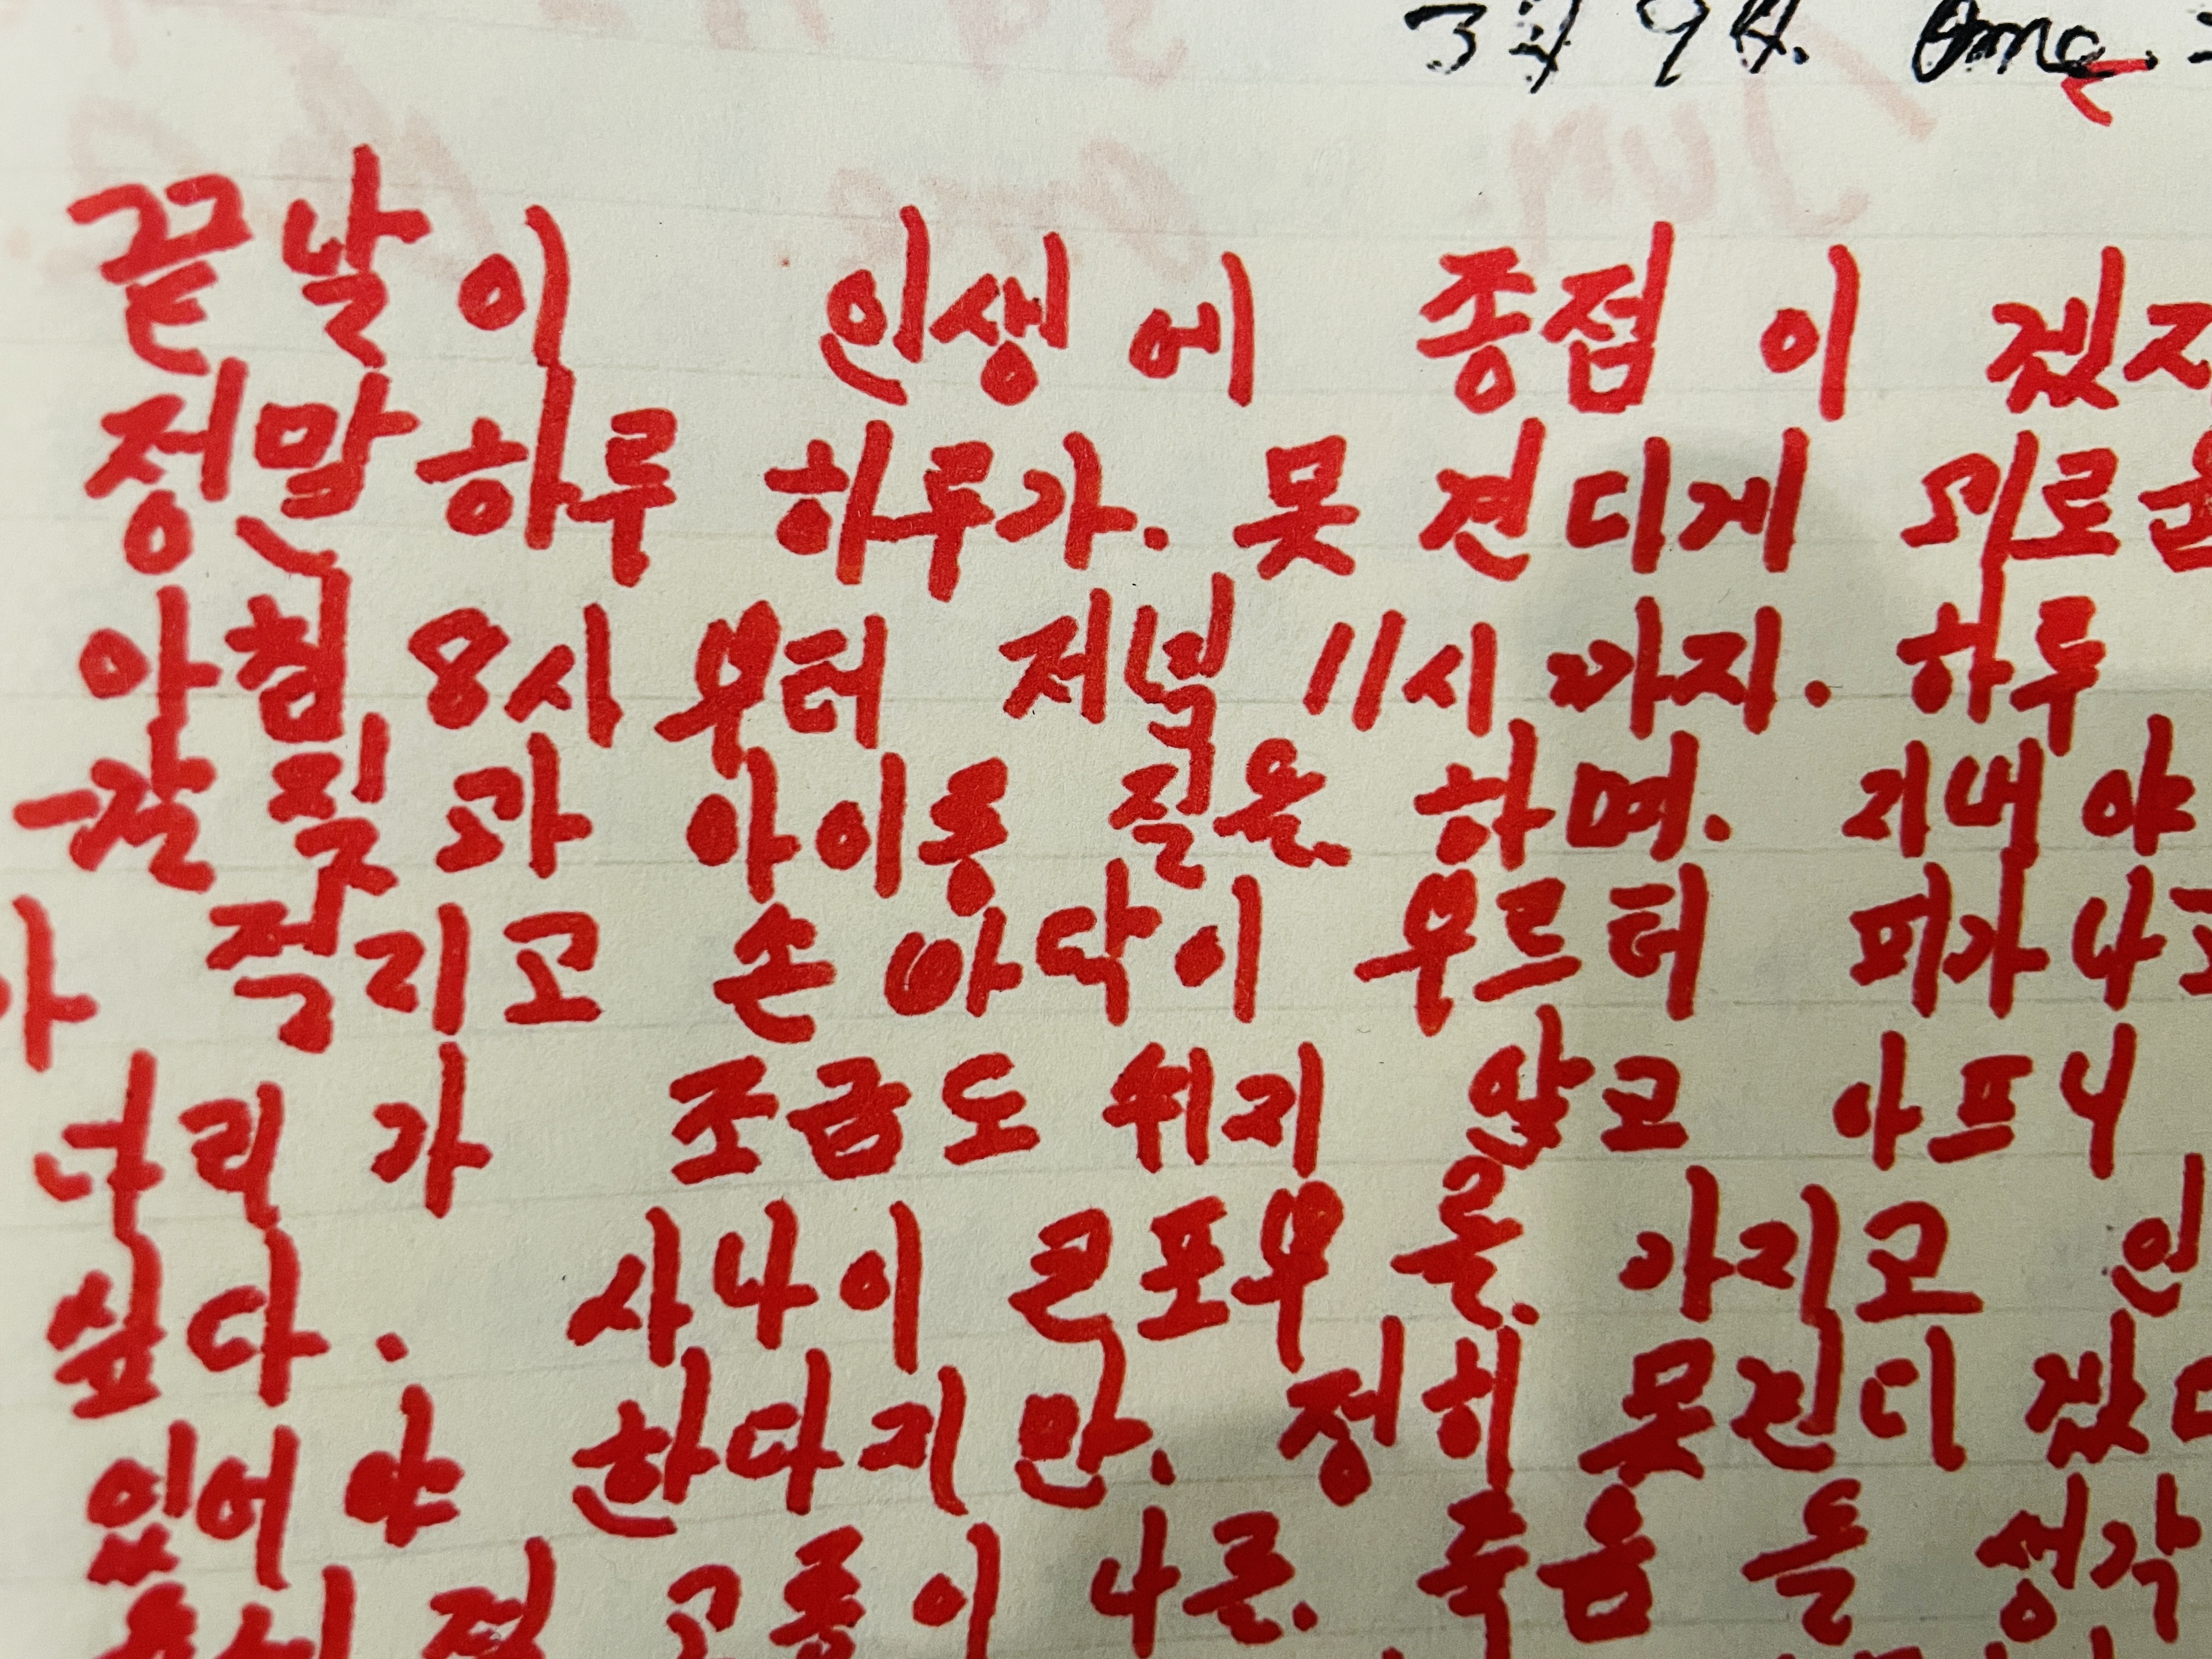 3월 9日.
끝날이 인생에 종점이 겠지
정말 하루 하루가. 못 견디게 괴로울
아침 8시 부터 저녁 11시 까지. 하루
칼 질과 아이롱 질을 하며. 지내야
손바닥이 부르터 피가 나고
다리가 조금도 쉬지 않고 아프니
싶다. 사나이 큰 포부를. 가지고 인
있어야 한다지만. 정히 못견디 겠다
고통이 나를. 죽음을 생각